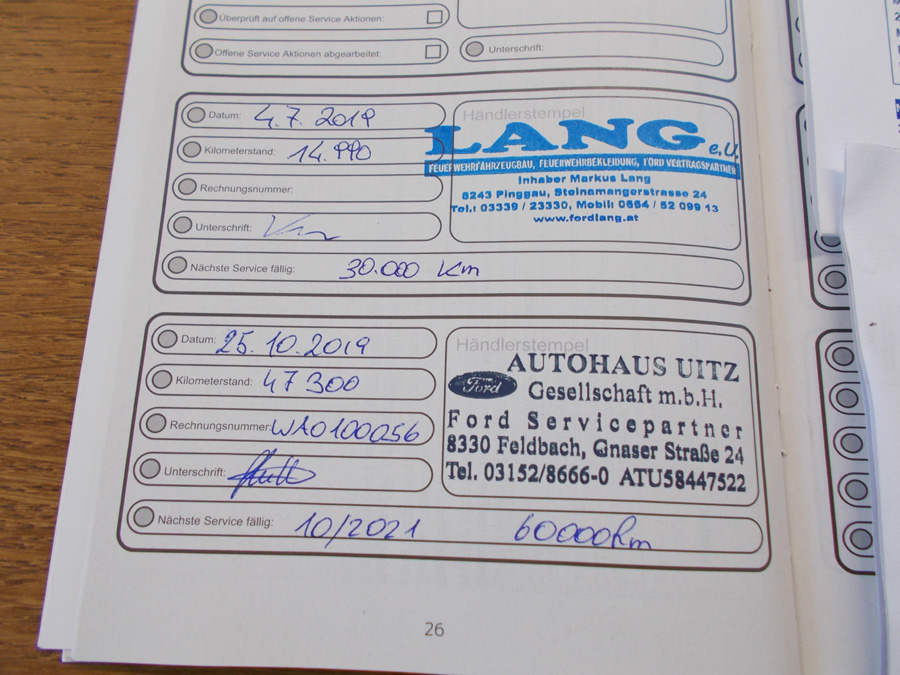 Überprüft auf offene Service Aktionen:
Offene Service Aktionen abgearbeitet:
Unterschrift:
Datum: 4.7. 2019
Kilometerstand: 14.990
Rechnungsnummer:
Unterschrift:
Nächste Service fällig: 30.000 Km
Händlerstempel
LANG e.U.
FEUERWEHRFAHRZEUGBAU, FEUERWEHRBEKLEIDUNG, FORD VERTRAGSPARTNER
Inhaber Markus Lang
8243 Pinggau, Steinamangerstrasse 24
Tel.: 03339 / 23330, Mobil: 0664 / 52 099 13
www.fordlang.at
Datum: 25.10.2019
Kilometerstand: 47 300
Rechnungsnummer: WA0100056
Unterschrift:
Nächste Service fällig: 10/2021 60000km
Händlerstempel
AUTOHAUS UITZ
Ford Gesellschaft m.b.H.
Ford Servicepartner
8330 Feldbach, Gnaser Straße 24
Tel. 03152/8666-0 ATU58447522
26